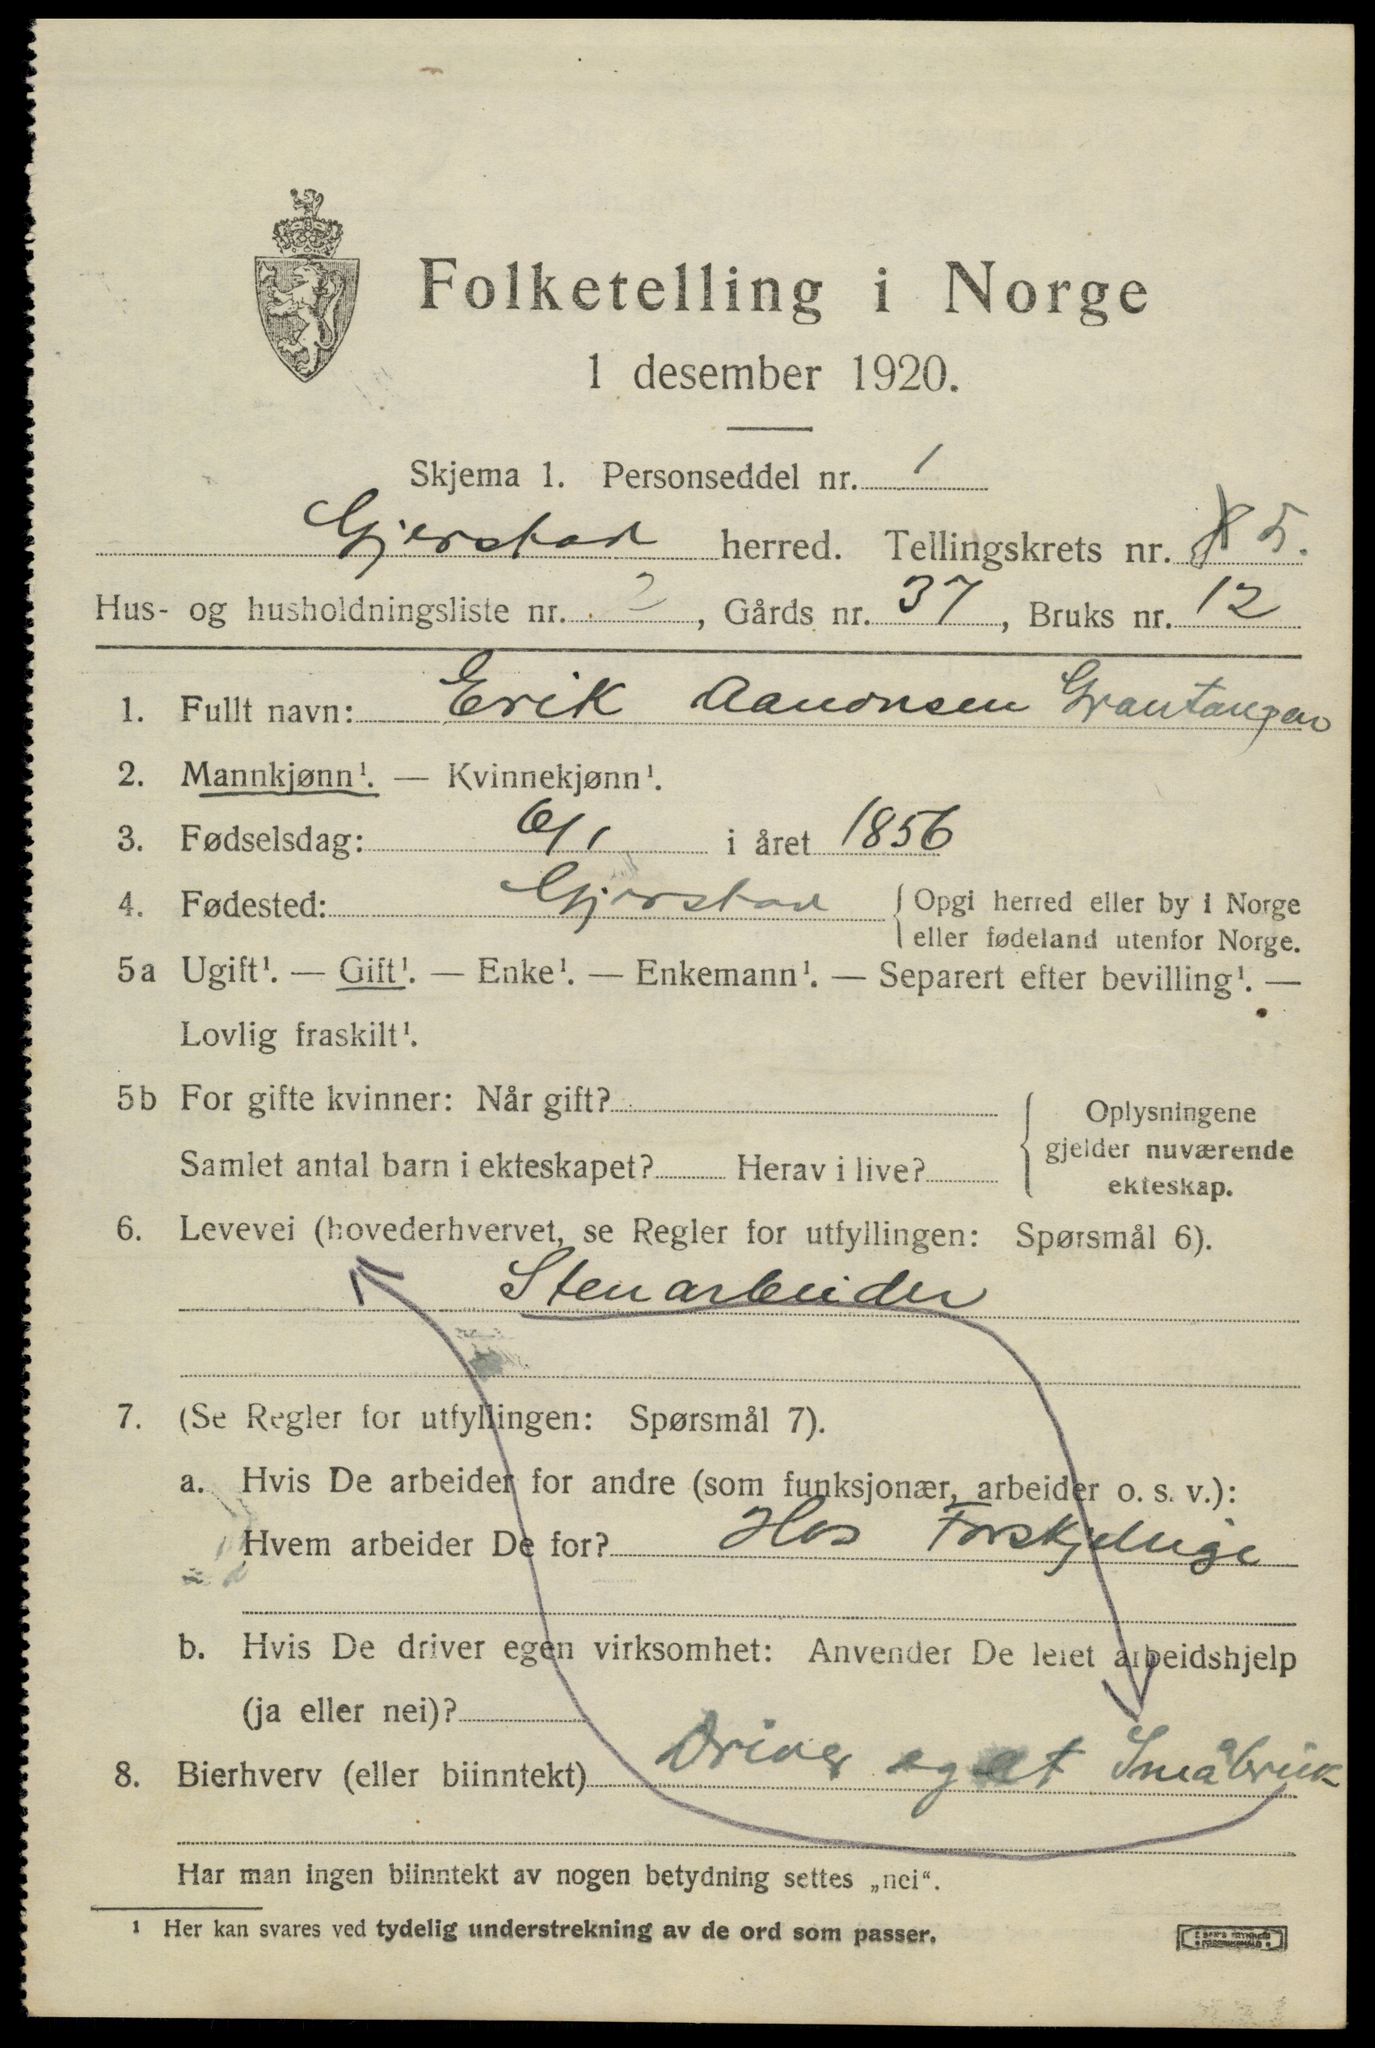 Folketelling i Norge
1 desember 1920.
Skjema 1. Personseddel nr. 1
Gjerstad herred. Tellingskrets nr. 5.
Hus- og husholdningsliste nr. 2, Gårds nr. 37, Bruks nr. 12
1. Fullt navn: Erik Aanonsen Grantangen
2. Mannkjønn¹. — Kvinnekjønn¹.
3. Fødselsdag: 6/1 i året 1856
4. Fødested: Gjerstad { Opgi herred eller by i Norge
eller fødeland utenfor Norge.
5a Ugift¹. — Gift¹. — Enke¹. — Enkemann¹. — Separert efter bevilling¹. —
Lovlig fraskilt¹.
5b For gifte kvinner: Når gift?
Samlet antal barn i ekteskapet? Herav i live?
Oplysningene
gjelder nuværende
ekteskap.
6. Levevei (hovederhvervet, se Regler for utfyllingen: Spørsmål 6).
Stenarbeider
7. (Se Regler for utfyllingen: Spørsmål 7).
a. Hvis De arbeider for andre (som funksjonær, arbeider o. s. v.):
Hvem arbeider De for? Hos Forskjellige
b. Hvis De driver egen virksomhet: Anvender De leiet arbeidshjelp
(ja eller nei)?
8. Bierhverv (eller biinntekt) Driver eget Småbruk
Har man ingen biinntekt av nogen betydning settes „nei“.
¹ Her kan svares ved tydelig understrekning av de ord som passer.